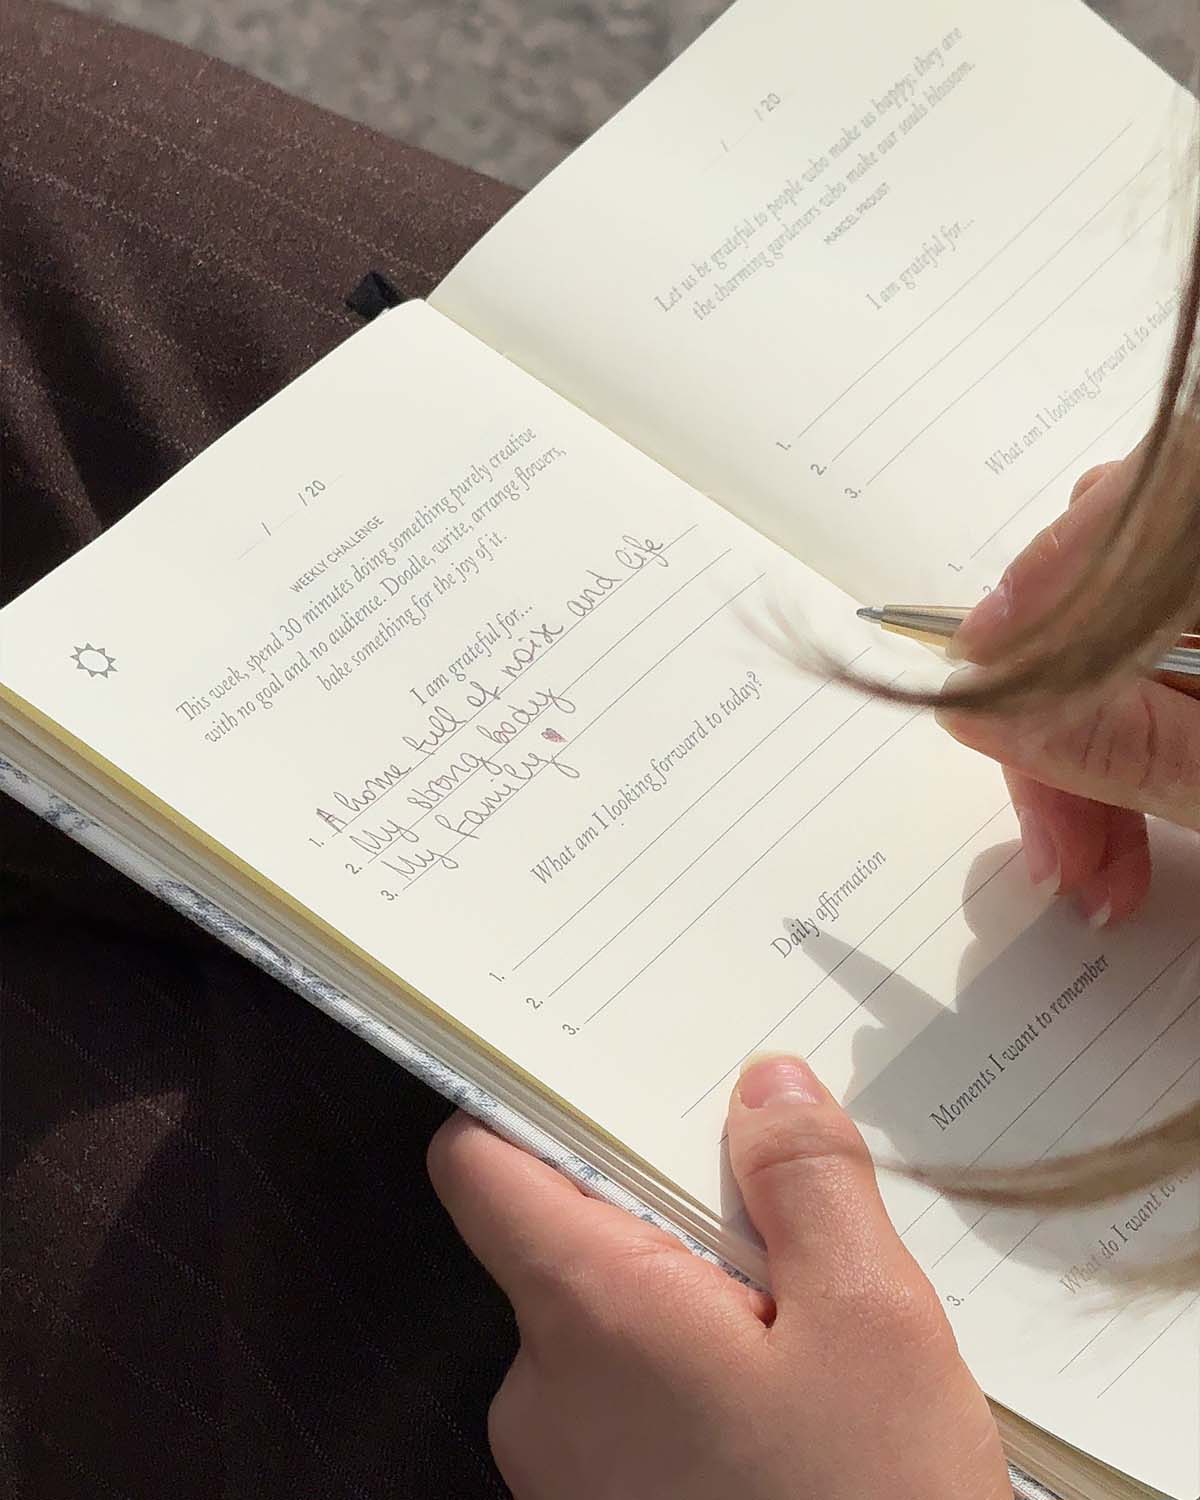 / / 20
WEEKLY CHALLENGE
This week, spend 30 minutes doing something purely creative
with no goal and no audience. Doodle, write, arrange flowers,
bake something for the joy of it.
I am grateful for...
1. A home full of noise and life
2. My strong body
3. My family
What am I looking forward to today?
1.
2.
3.
Daily affirmation
Moments I want to remember
3.
What do I want to
/ / 20
Let us be grateful to people who make us happy; they are
the charming gardeners who make our souls blossom.
MARCEL PROUST
I am grateful for...
1.
2.
3.
What am I looking forward to today
1.
2.